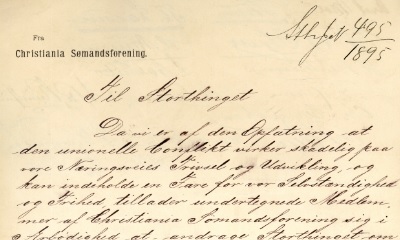 Fra
Christiania Sømandsforening.
Sthprt 495/1895
Til Storthinget
Da vi er af den Opfatning at
den unionelle Conflikt virker skadelig paa
vore Næringsveies Trivsel og Udvikling, og
kan indeholde en Fare for vor Selvstændighed
og Frihed, tillader undertegnede Medlem-
mer af Christiania Sømandsforening sig i
Ærbødighed at andrage Storthinget om